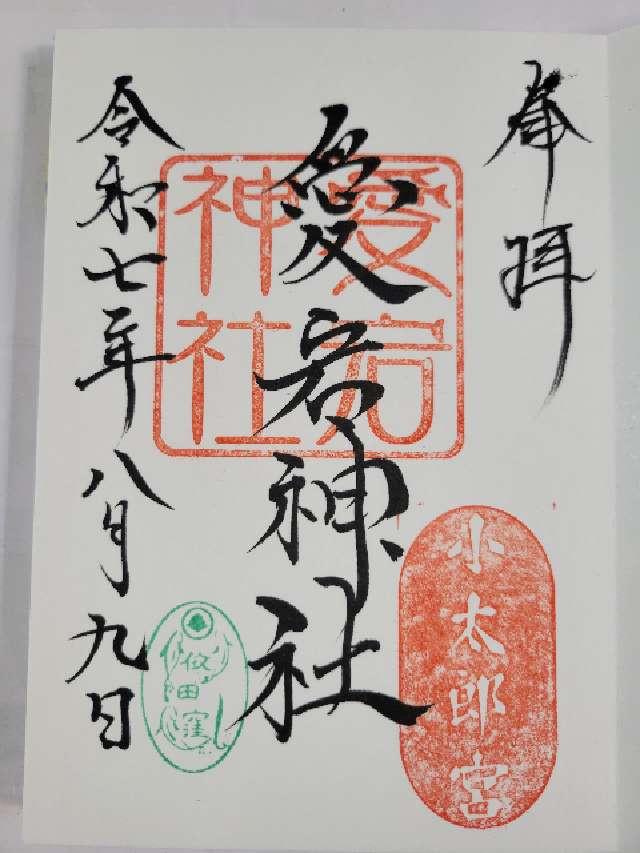 奉拝
小太郎宮
愛宕神社
愛宕神社
令和七年八月九日